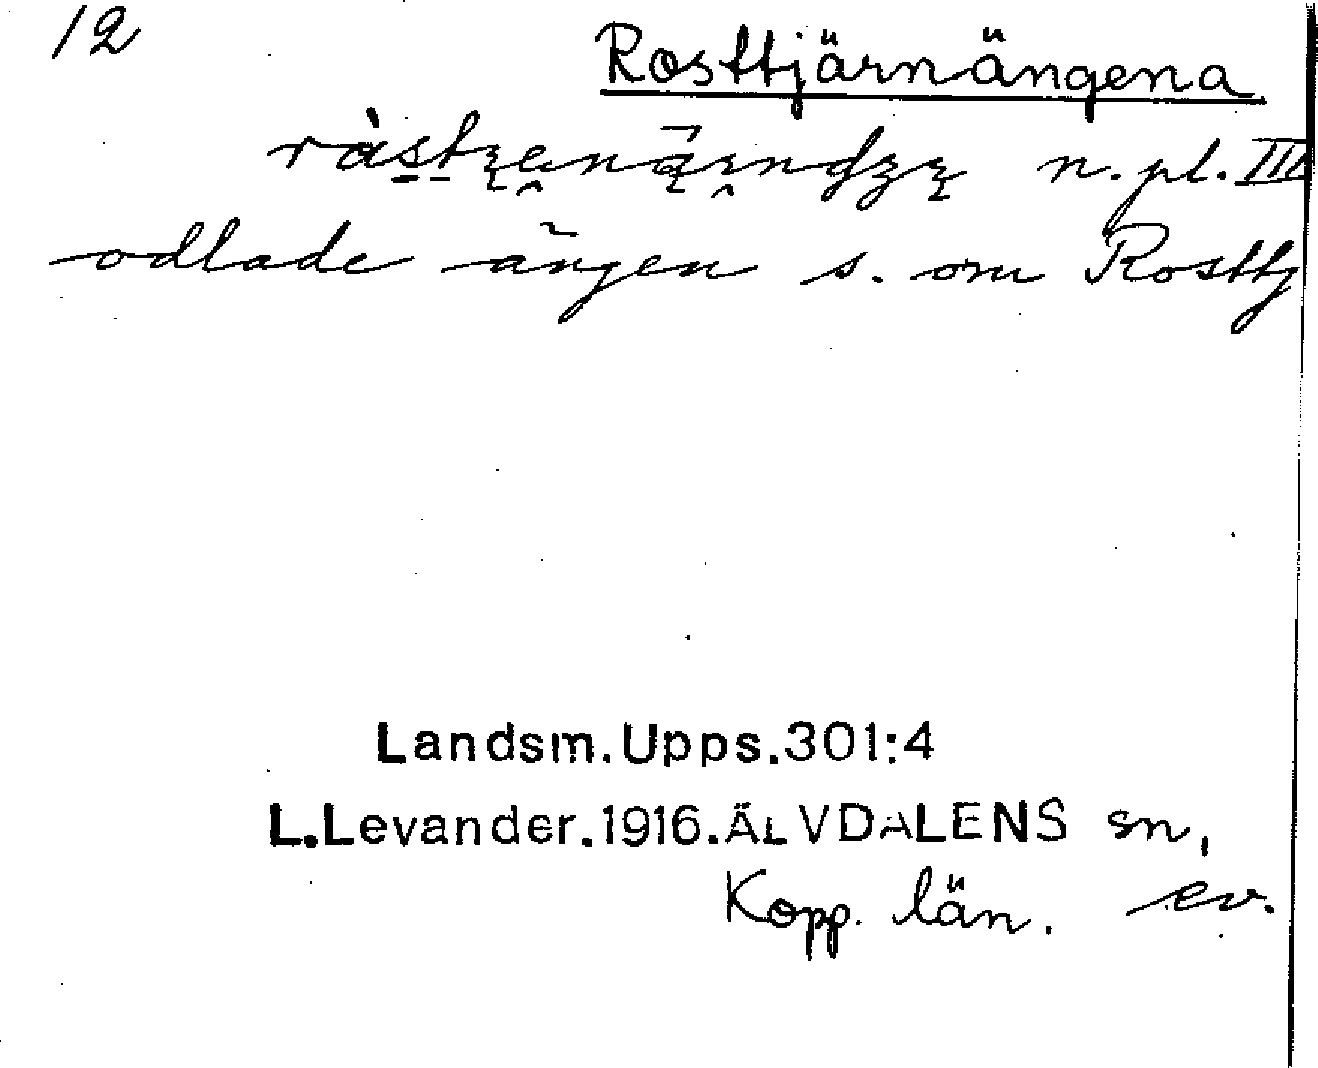 12
Rosttjärnängena
n. pl. III
odlade ängen s. om Rosttj
Landsm.Upps.301:4
L.Levander.1916.ÄLVDALENS sn,
Kopp. län. ev.